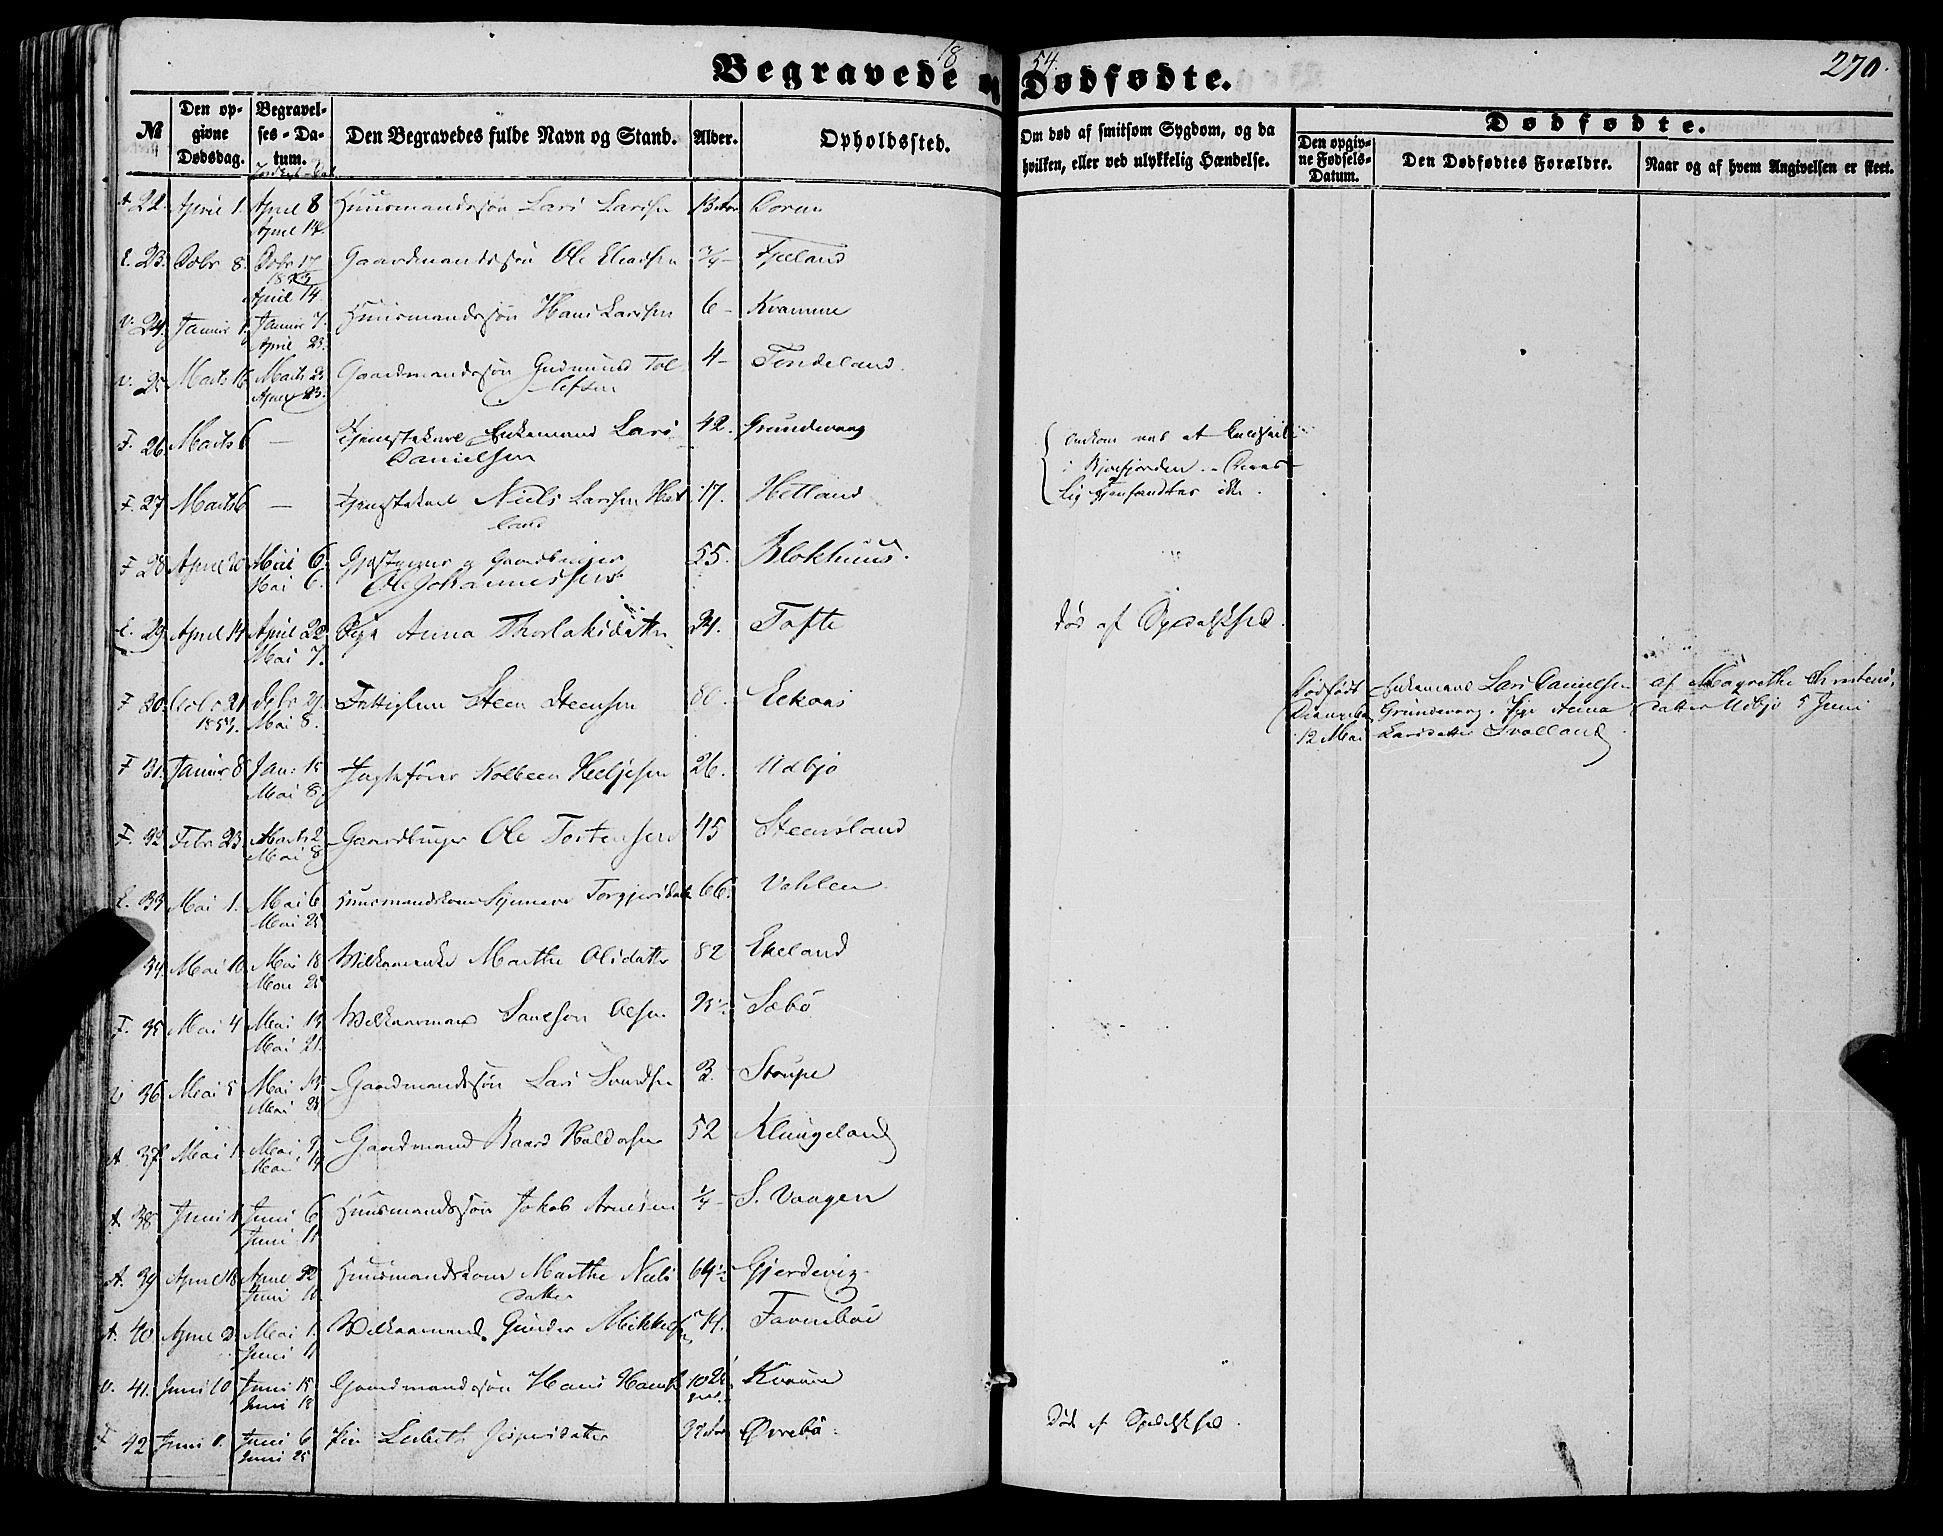 18 54. 270.
Begravede og Dødfødte.
№ Den opgivne Dødsdag. Begravelses-Datum. Den Begravedes fulde Navn og Stand. Alder. Opholdssted. Om død af smitsom Sygdom, og da hvilken, eller ved ulykkelig Hændelse. Dødfødte.
Den opgivne Fødsels-Datum. Den Dødfødtes Forældre. Naar og af hvem Angivelsen er skeet.
A 22. April 1. April 8 Huusmandssøn Lars Larsen 13
April 14.
E. 23. 8. 17 Gaardmandssøn Ole 3/4 – Fjeland
1853
April 14
V. 24. Januar 1. Januar 7. Huusmandssøn Hans Larsen 6 – Kvamme
April 23.
V. 25 Marts 16 Marts 23 Gaardmandssøn Gudmund Tol 4 – Tendeland.
April 23. lefsen
F. 26 Marts 6 — Tjenestekarl Enkemand Lars 42. Grundevaag
Danielsen
omkom ved at
i Bjoefjorden. – Deres
Lig gjenfandtes ikke.
F. 27 Marts 6 — Tjenestekarl Niels Larsen Het 17. Hetland
land
F 28 April 20 Mai 6. Gjæstgiver og Gaardbruger 55. Blokhuus.
Mai 6. Ole Johannessen
E. 29 April 14 April 22 Pige Anna Thorlaksdatter 34. Tofte Død af Spedalskhed.
Mai 7.
F 30. 21 27 Fattiglem Steen Steensen 80. Eekaas
1854. Mai 8.
Dødfødt Enkemand Lars Danielsen af Magrethe Christens
Drengebarn Grundevaag. Pige Anna datter Udbjo 5 Juni
12 Mai Larsdatter Svolland
F 31. Januar 8. Jan: 15 Kolbeen Heljesen 26. Udbjo
Mai 8.
F. 32 Febr 23 Marts 2 Gaardbruger Ole Tostensen 45 Steensland
Mai 8
E. 33 Mai 1. Mai 6 Huusmandskone Synneve Torgjersdatter 66. Vahlen.
Mai 25
34. Mai 10 Mai 18 Marthe Olsdatter 82 Ekeland
Mai 25
F. 35 Mai 4 Mai 13 Vilkaarmand Samson Olsen Sæbø
Mai 21.
V 36 Mai 5 Mai 13 Gaardmandssøn Lars 3. Stoupe
Mai 25
A. 37. Mai 1. Mai Gaardmand Baard Haldorsen 52 Klungeland
Mai 14
A. 38 Juni 1. Juni 6 Huusmandssøn Jakob Arnesen 1/4 – S. Vaagen
Juni 11
A. 39 April 18 April 22 Huusmandskone Marthe Niels 64 1/2 Gjerdevig.
Juni 11 datter
A. 40 April 2 Mai 1. Vilkaarmand Gunder Mikkelsen 74. Tornebøe
Juni 11
V. 41. Juni 10 Juni 15 Gaardmandssøn Hans Hansen Kvamme
Juni 18
F 42 Juni 1. Juni 6 Pige Lisbeth Jespersdatter 32 Øvrebø. Død af Spedalskhed.
Juni 25